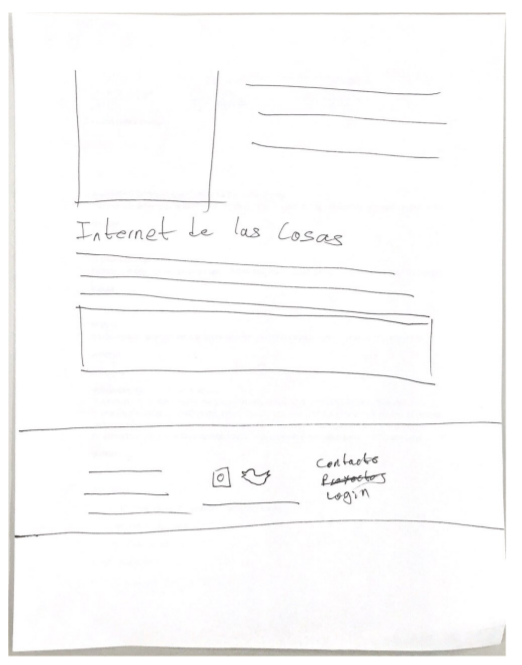 Internet de las Cosas
Contacto
Proyectos
Login